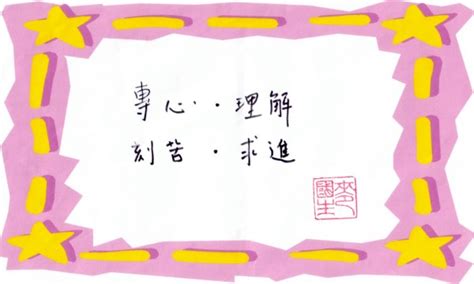 專心・理解
刻苦・求進
麥國生